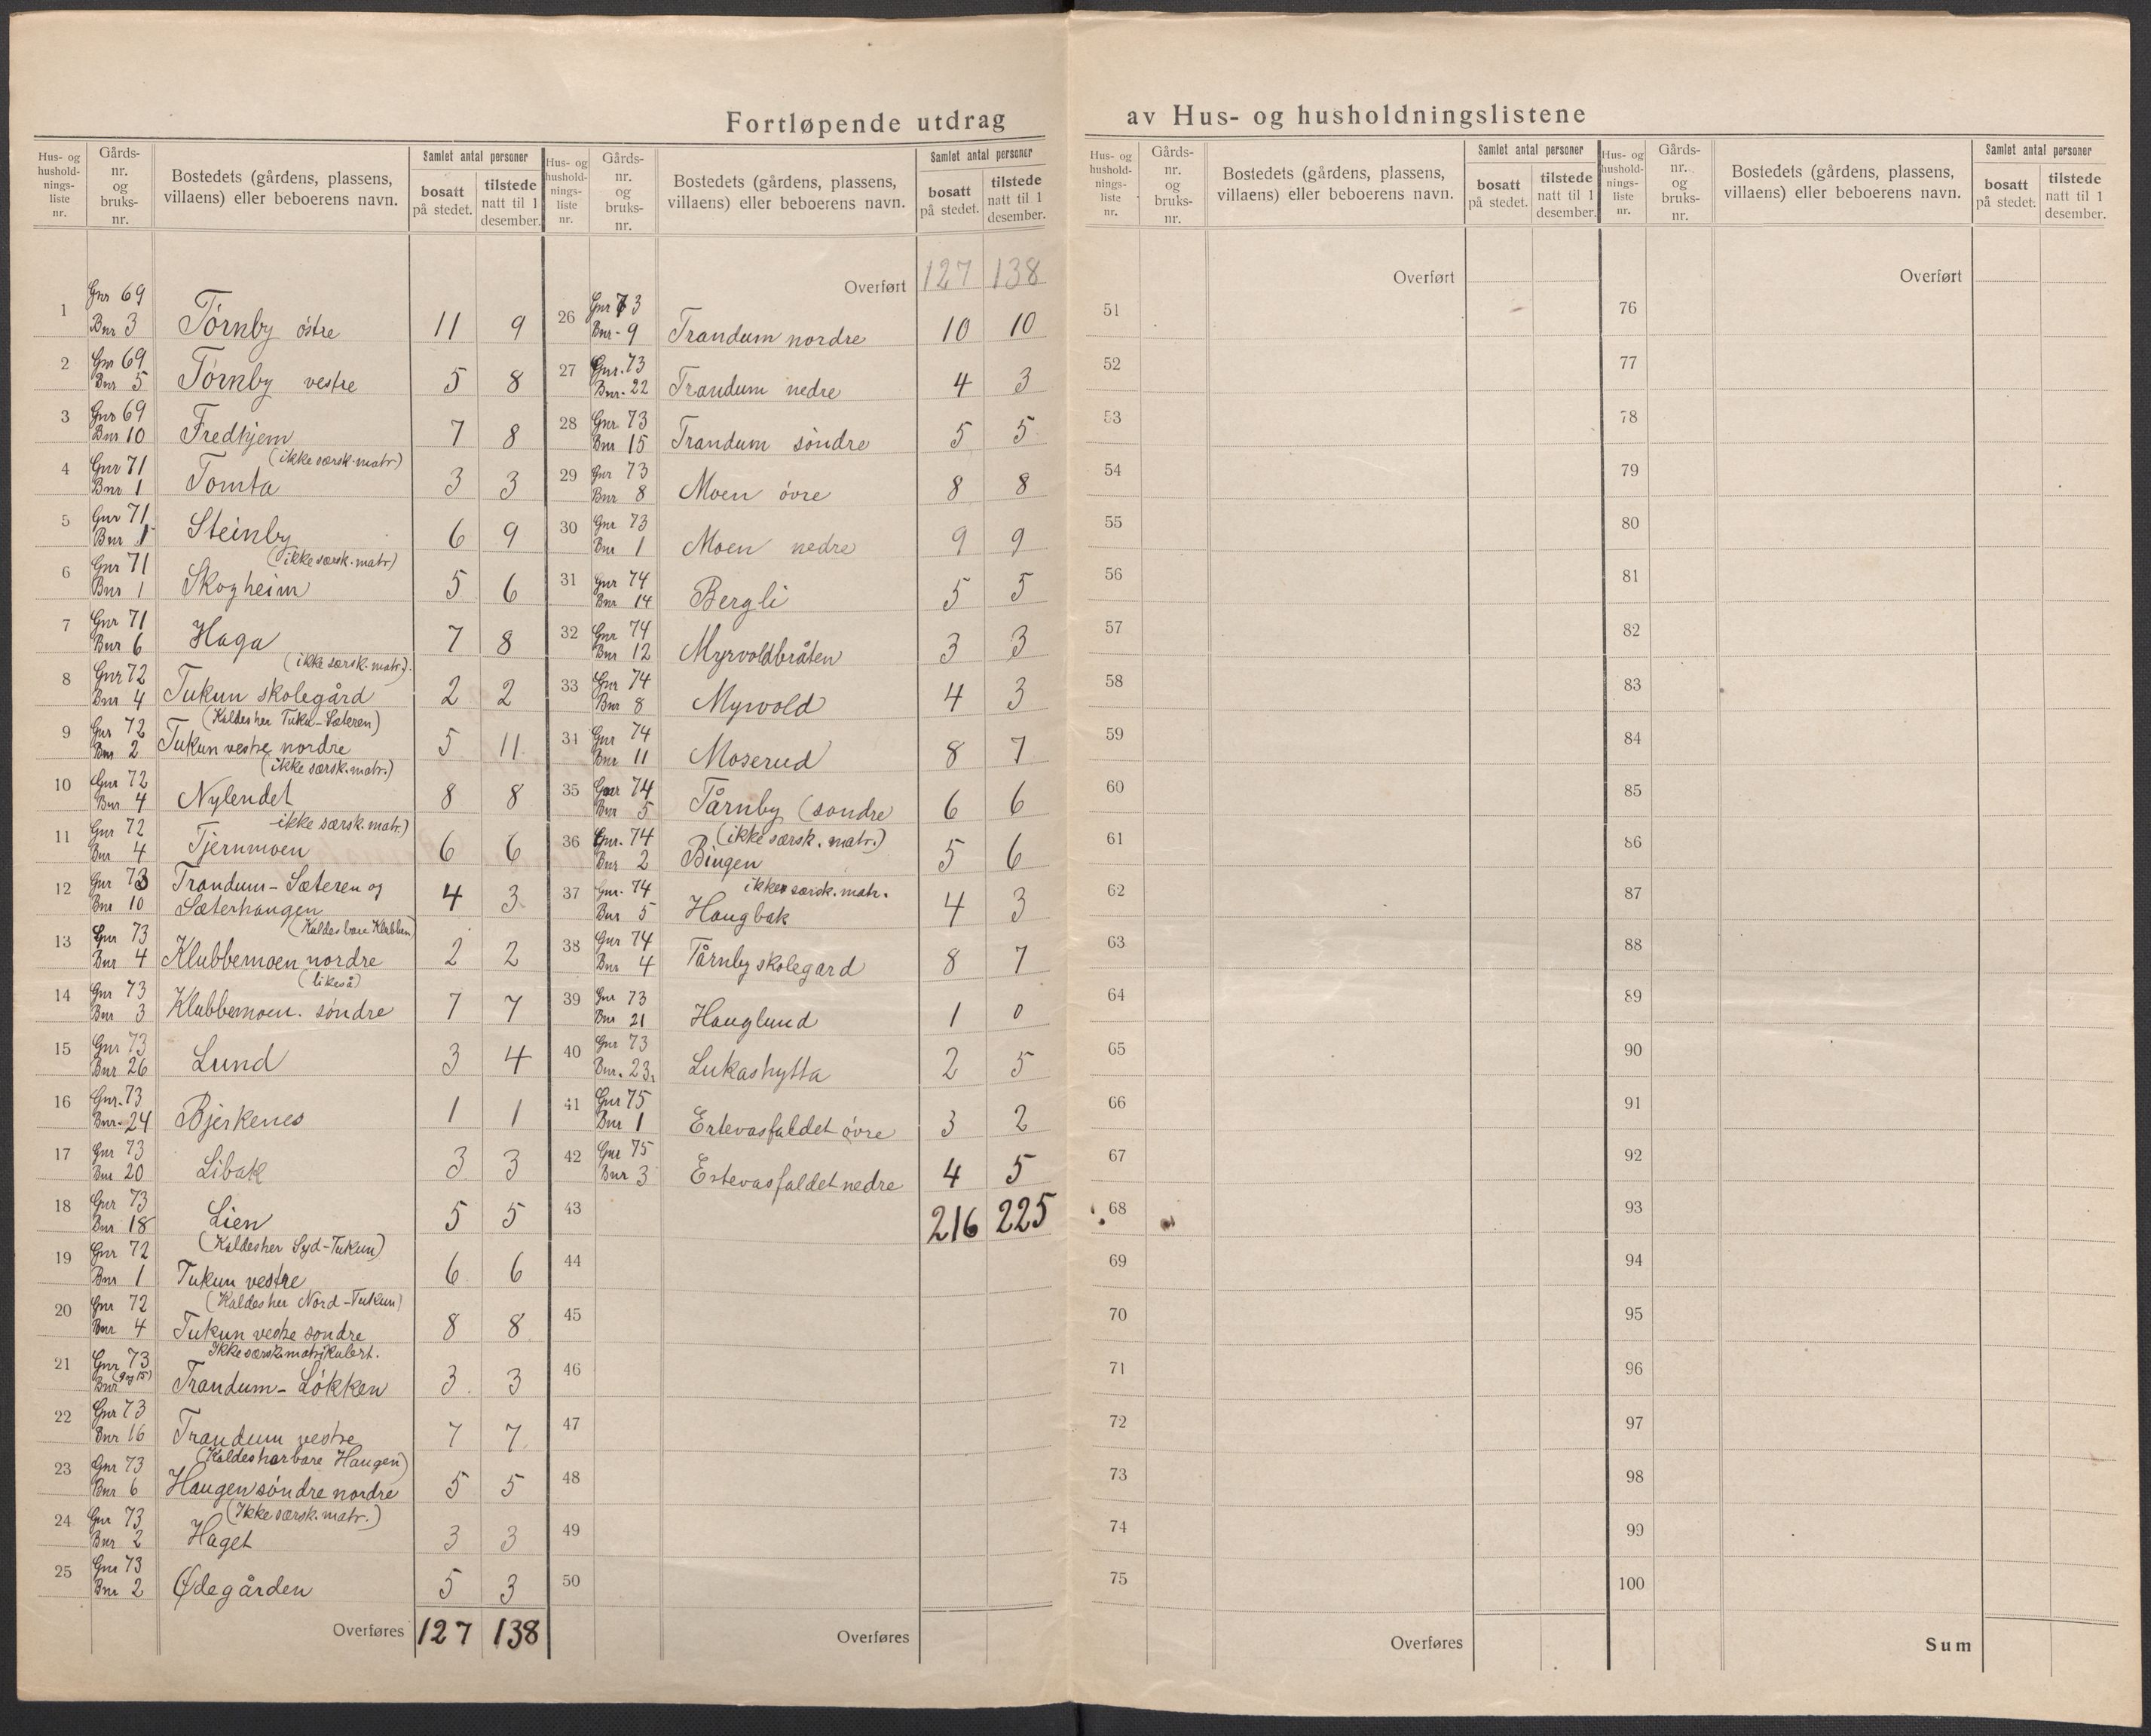 Fortløpende utdrag av Hus- og husholdningslistene
Hus- og hushold-nings-liste nr. | Gårds-nr. og bruks-nr. | Bostedets (gårdens, plassens, villaens) eller beboerens navn. | Samlet antal personer | bosatt på stedet. | tilstede natt til 1 desember.
1 Gnr 69 Bnr 3 Tørnby østre 11 9
2 Gnr 69 Bnr 5 Tørnby vestre 5 8
3 Gnr 69 Bnr 10 Fredhjem 7 8
4 Gnr 71 Bnr 1 (ikke særsk. matr) Tomta 3 3
5 Gnr 71 Bnr 1 Steinby 6 9
6 Gnr 71 Bnr 1 (ikke særsk. matr) Skogheim 5 6
7 Gnr 71 Bnr 6 Haga 7 8
8 Gnr 72 Bnr 4 (ikke særsk. matr.) Tukun skolegård 2 2
9 Gnr 72 Bnr 2 (Kaldes her Tuku-Sæteren) Tukun vestre nordre 5 11
10 Gnr 72 Bnr 4 (ikke særsk. matr.) Nylendet 8 8
11 Gnr 72 Bnr 4 ikke særsk. matr.) Tjernmoen 6 6
12 Gnr 73 Bnr 10 Trandum-Sæteren og Sæterhaugen 4 3
13 Gnr 73 Bnr 4 (Kaldes bare Klubben) Klubbemoen nordre 2 2
14 Gnr 73 Bnr 3 (likeså) Klubbemoen. søndre 7 7
15 Gnr 73 Bnr 26 Lund 3 4
16 Gnr. 73 Bnr. 24 Bjerkenes 1 1
17 Gnr 73 Bnr 20 Libak 3 3
18 Gnr 73 Bnr 18 Lien 5 5
19 Gnr 72 Bnr 1 (Kaldes her Syd-Tukun) Tukun vestre 6 6
20 Gnr 72 Bnr 4 (Kaldes her Nord-Tukun) Tukun vestre søndre 8 8
21 Gnr 73 Bnr (9 og 15) Ikke særsk. matrikulert. Trandum-Løkken 3 3
22 Gnr 73 Bnr 16 Trandum vestre 7 7
23 Gnr 73 Bnr 6 (Kaldes har bare Haugen) Haugen søndre nordre 5 5
24 Gnr 73 Bnr 2 (Ikke særsk. matr.) Haget 3 3
25 Gnr 73 Bnr 2 Ødegården 5 3
Overføres 127 138
Hus- og hushold-nings-liste nr. | Gårds-nr. og bruks-nr. | Bostedets (gårdens, plassens, villaens) eller beboerens navn. | Samlet antal personer | bosatt på stedet. | tilstede natt til 1 desember.
Overført 127 138
26 Gnr 73 Bnr - 9 Trandum nordre 10 10
27 Gnr. 73 Bnr. 22 Trandum nedre 4 3
28 Gnr. 73 Bnr 15 Trandum søndre 5 5
29 Gnr 73 Bnr 8 Moen øvre 8 8
30 Gnr 73 Bnr 1 Moen nedre 9 9
31 Gnr 74 Bnr 14 Bergli 5 5
32 Gnr 74 Bnr 12 Myrvoldbråten 3 3
33 Gnr 74 Bnr 8 Myrvold 4 3
34 Gnr 74 Bnr 11 Moserud 8 7
35 Gnr 74 Bnr 5 Tårnby (søndre 6 6
36 Gnr. 74 Bnr 2 (ikke særsk. matr.) Bingen 5 6
37 Gnr. 74 Bnr 5 ikke særsk. matr. Haugbak 4 3
38 Gnr 74 Bnr 4 Tårnby skolegard 8 7
39 Gnr 73 Bnr 21 Hauglund 1 0
40 Gnr 73 Bnr. 23. Lukashytta 2 5
41 Gnr 75 Bnr 1 Ertevasfaldet øvre 3 2
42 Gnr 75 Bnr 3 Ertevasfaldet nedre 4 5
43 216 225
44
45
46
47
48
49
50
Overføres
Hus- og hushold-nings-liste nr. | Gårds-nr. og bruks-nr. | Bostedets (gårdens, plassens, villaens) eller beboerens navn. | Samlet antal personer | bosatt på stedet. | tilstede natt til 1 desember.
Overført
51
52
53
54
55
56
57
58
59
60
61
62
63
64
65
66
67
68
69
70
71
72
73
74
75
Overføres
Hus- og hushold-nings-liste nr. | Gårds-nr. og bruks-nr. | Bostedets (gårdens, plassens, villaens) eller beboerens navn. | Samlet antal personer | bosatt på stedet. | tilstede natt til 1 desember.
Overført
76
77
78
79
80
81
82
83
84
85
86
87
88
89
90
91
92
93
94
95
96
97
98
99
100
Sum